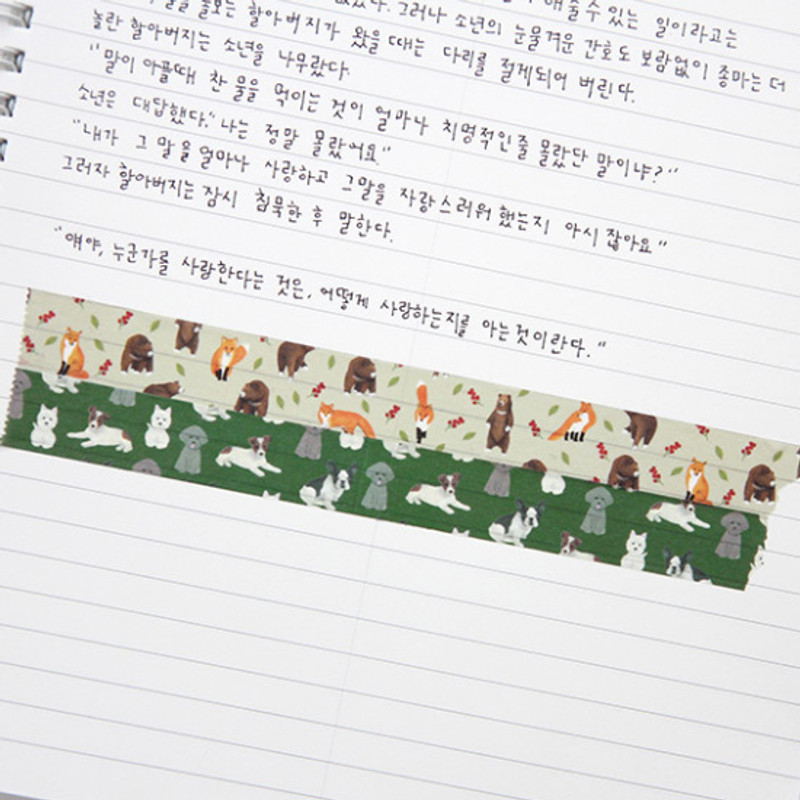 수있는 일이라고는
없었다. 그러나 소년의 눈물겨운 간호도 보람없이 종마는 더
돌보는 할아버지가 왔을 때는 다리를 절게되어 버린다.
놀란 할아버지는 소년을 나무랐다.
"말이 아플때 찬 물을 먹이는 것이 얼마나 치명적인줄 몰랐단 말이냐?"
소년은 대답했다." 나는 정말 몰랐어요"
"내가 그 말을 얼마나 사랑하고 그말을 자랑스러워 했는지 아시 잖아요"
그러자 할아버지는 잠시 침묵한 후 말한다.
"얘야, 누군가를 사랑한다는 것은, 어떻게 사랑하는지를 아는것이란다."